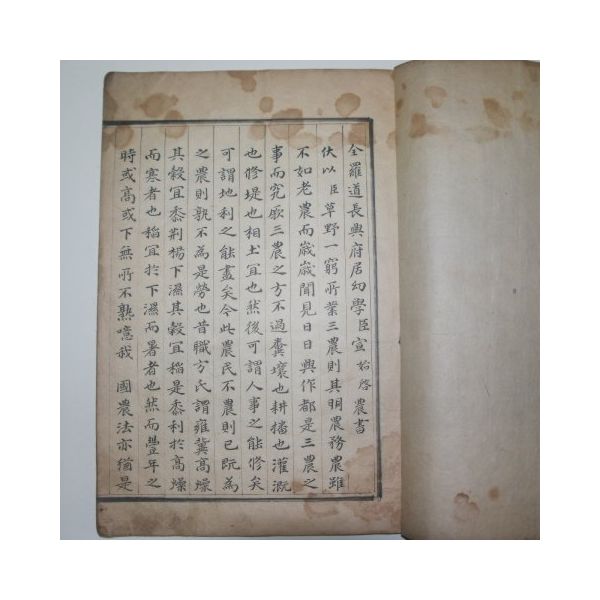 全羅道長興府居幼學臣宣始啓農書
伏以臣草野一窮所業三農則其明農務農雖
不如老農而歲歲聞見日日興作都是三農之
事而究厥三農之方不過糞壤也耕播也灌漑
也修堤也相土宜也然後可謂人事之能修矣
可謂地利之能盡矣今此農民不農則已旣爲
之農則孰不爲是勞也昔職方氏謂雍冀高燥
其糓宜黍荆揚下濕其糓宜稻是黍利於高燥
而寒者也稻宜於下濕而暑者也然而豐年之
時或高或下無所不熟噫我 國農法亦猶是